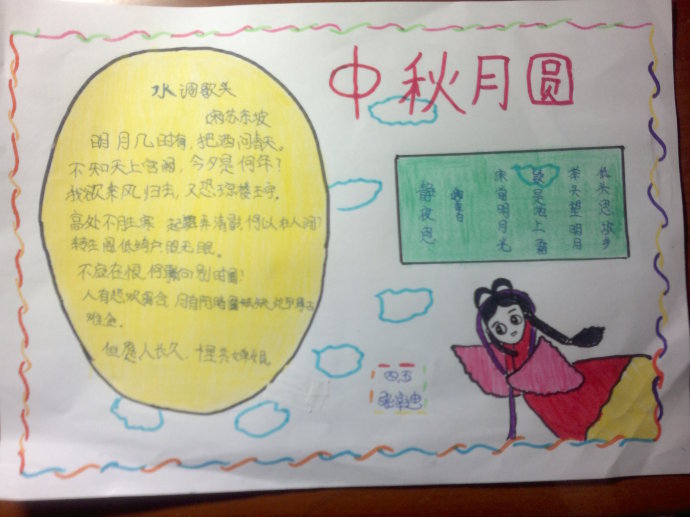 中秋月圆
水调歌头
苏东坡
明月几时有,把酒问青天。
不知天上宫阙,今夕是何年?
我欲乘风归去,又恐琼楼玉宇。
高处不胜寒 起舞弄清影,何以在人间?
转 低绮户照无眠。
不应在恨,何 向别时圆?
人有悲欢离合 月有阴晴 缺, 古
难全。
但愿人长久,
静夜思
李白
床前明月光
疑是地上霜
举头望明月
低头思故乡
四.五